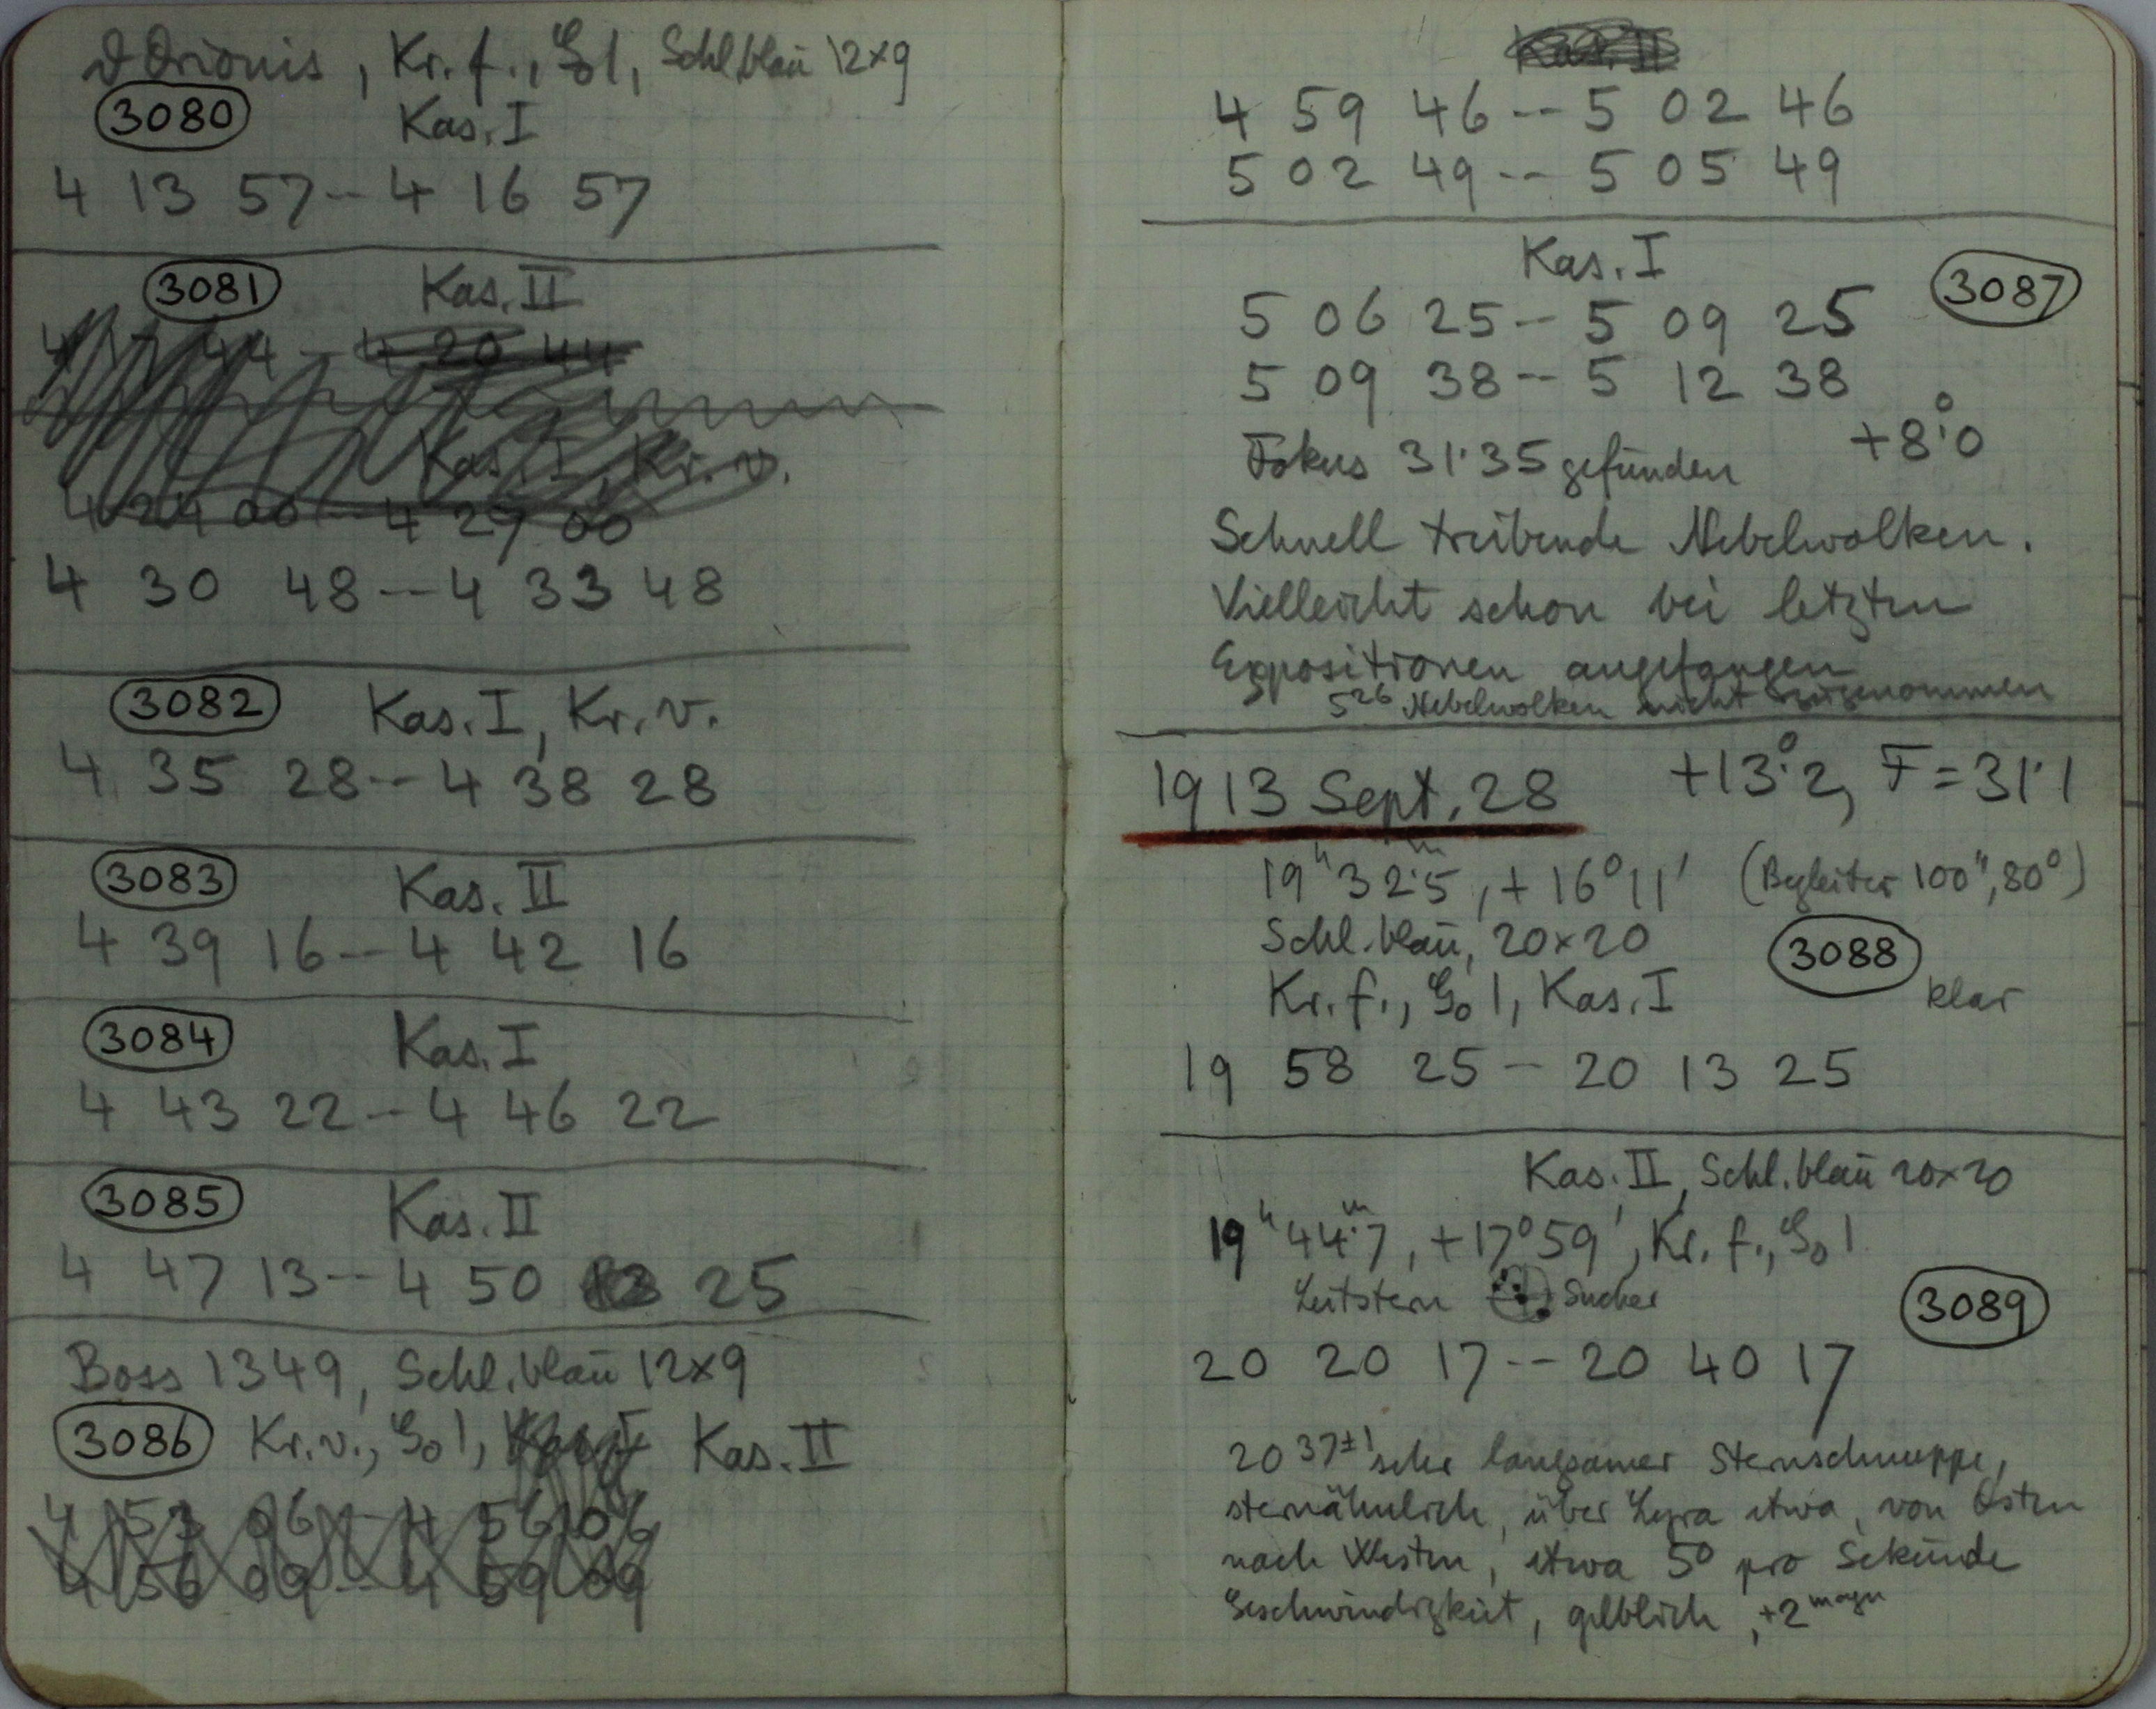 ϑ Orionis, Kr. f., G₀ 1, Schl. blau 12×9
3080 Kas. I
4 13 57 -- 4 16 57
3081 Kas. II
44 -- 4 20 44
Kas. I, Kr. v.
4 24 00 -- 4 29 00
4 30 48 -- 4 33 48
3082 Kas. I, Kr. v.
4 35 28 -- 4 38 28
3083 Kas. II
4 39 16 -- 4 42 16
3084 Kas. I
4 43 22 -- 4 46 22
3085 Kas. II
4 47 13 -- 4 50 25
Boss 1349, Schl. blau 12×9
3086 Kr. v., G₀ 1, Kas. II
4 53 06 -- 4 56 06
4 56 09 -- 4 59 09
Kas. II
4 59 46 -- 5 02 46
5 02 49 -- 5 05 49
Kas. I
3087
5 06 25 -- 5 09 25
5 09 38 -- 5 12 38
Fokus 31.35 gefunden +8°.0
Schnell treibende Nebelwolken.
Vielleicht schon bei letzten
Expositionen angefangen
5²⁶ Nebelwolken nicht zugenommen
1913 Sept. 28 +13°.2, F = 31.1
19ʰ 32ᵐ.5, +16°11′ (Begleiter 100″, 80°)
Schl. blau, 20×20
3088
Kr. f., G₀ 1, Kas. I klar
19 58 25 -- 20 13 25
Kas. II, Schl. blau 20×20
19ʰ 44ᵐ.7, +17°59′, Kr. f., G₀ 1
Leitstern Sucher
3089
20 20 17 -- 20 40 17
20 37±1 sehr langsamer Sternschnuppe,
sternähnlich, über Lyra etwa, von Osten
nach Westen, etwa 5° pro Sekunde
Geschwindigkeit, gelblich, +2 magn